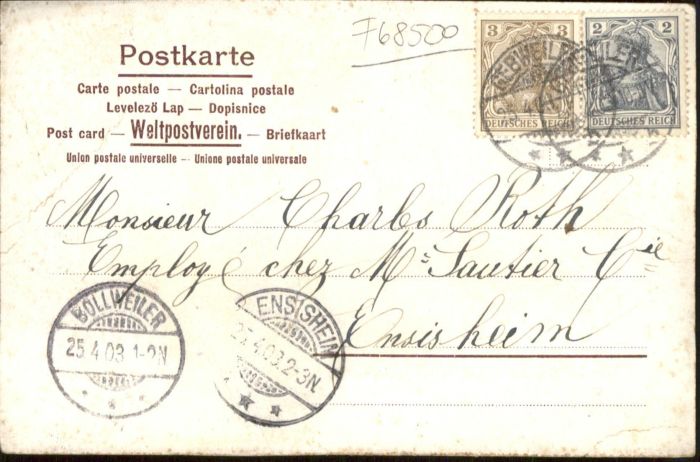 F68500
Postkarte
Carte postale — Cartolina postale
Levelezö Lap — Dopisnice
Post card — Weltpostverein. — Briefkaart
Union postale universelle — Unione postale universale
3 3
DEUTSCHES REICH
2 2
DEUTSCHES REICH
GEBWEILER
Monsieur Charles Roth
Employé chez Mr Sautier Cie
Ensisheim
BOLLWEILER
25.4.03.1-2N
ENSISHEIM
25.4.03.2-3N